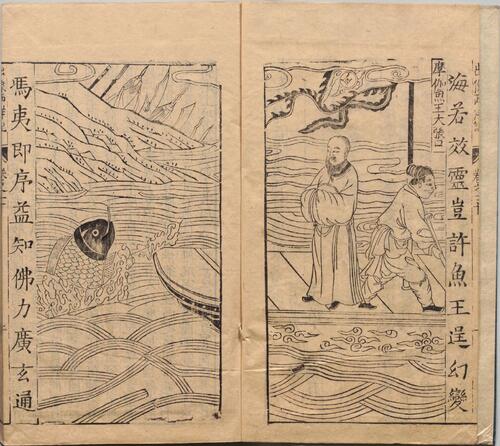 海若效靈豈許魚王逞幻變
摩伽魚王大張口
馮夷即序益知佛力廣玄通